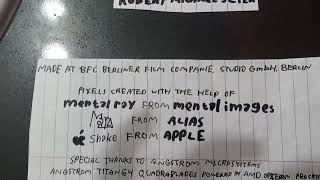 MADE AT BFC BERLINER FILM COMPANIE STUDIO GmbH, BERLIN
PIXELS CREATED WITH THE HELP OF
mental ray FROM mental images
MAYA FROM ALIAS
Shake FROM APPLE
SPECIAL THANKS TO ANGSTROM MICROSYSTEMS
ANGSTROM TITAN64 QUADROBLADES POWERED BY AMD OPTERON PROCESS